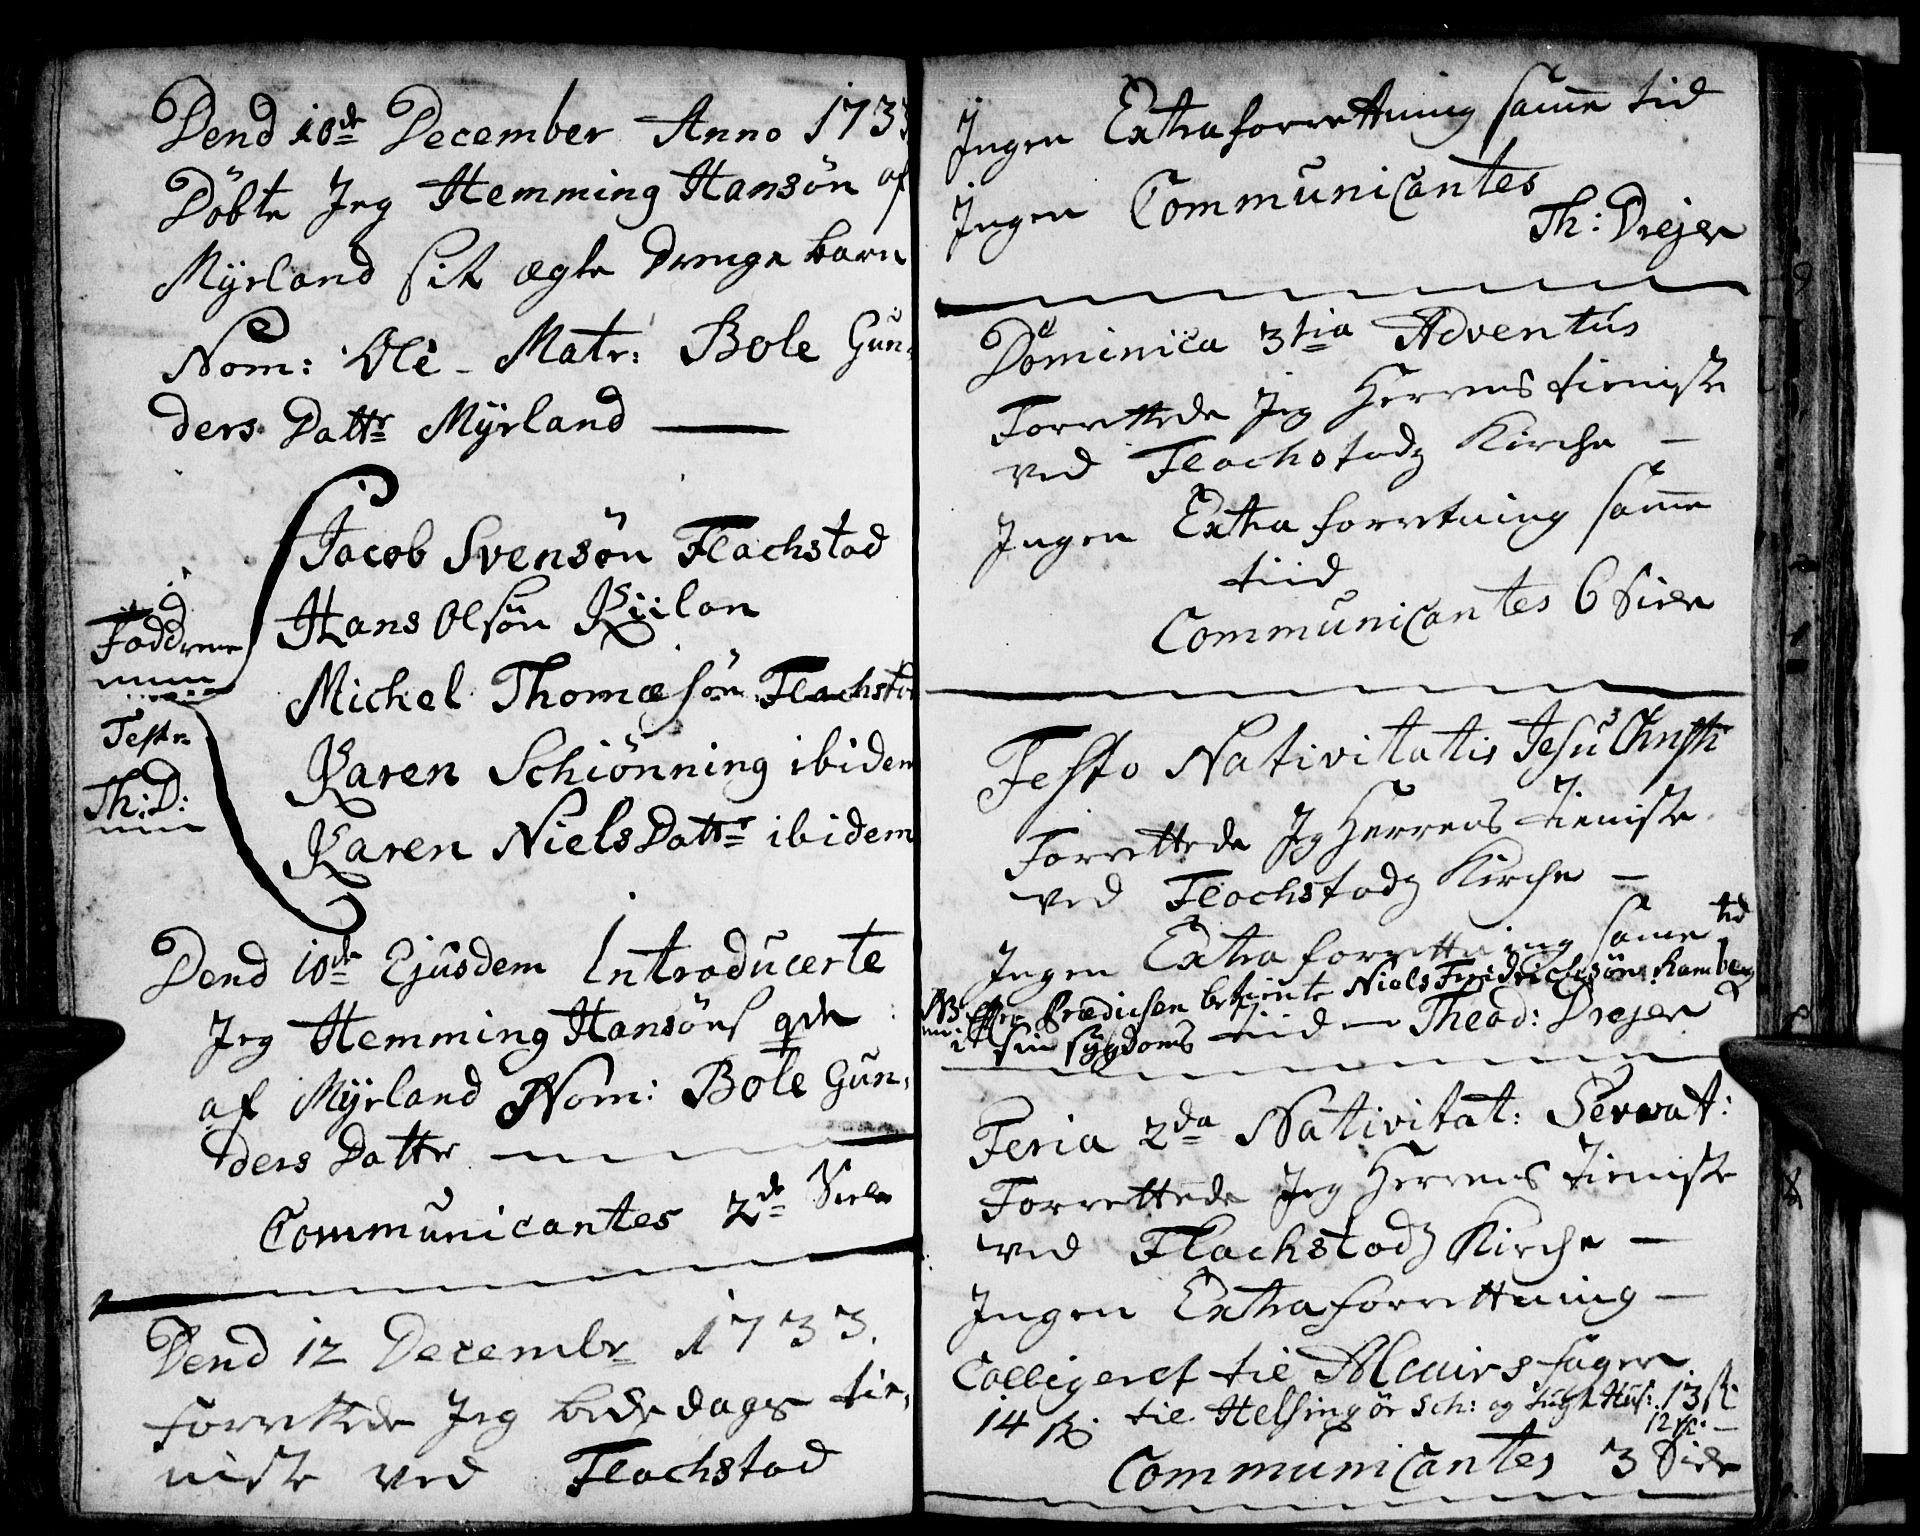 Dend 10de December Anno 1733
Döbte Jeg Hemming Hansön af
Myrland sit ægte Drenge barn
Nom: Ole - Matr: Bole Gun-
ders Dattr Myrland —
Jacob Svensön Flachstad
Hans Olsön Kiilan
Faddrene
Michel Thomæsön Flachstad
Teste
Karen Schiönning ibidem
Th: D:
Karen Niels Dattr ibidem
Dend 10de Ejusdem Introducerte
Jeg Hemming Hansöns qde
af Myrland Nom: Bole Gun-
ders Dattr
Communicantes 2de Siele
Dend 12 Decembr 1733.
forrettede Jeg bededags tie-
niste ved Flachstad
Ingen Extra forrettning samme tid
Ingen Communicantes
Th: Drejer
Dominica 3tia Adventus
Forrettede Jeg Herrens tieniste
ved Flachstadz Kirche —
Ingen Extra forretning samme
tiid
Communicantes 6 Siele
Festo Nativitatis Jesu Christi
Forrettede Jeg Herrens tieniste
ved Flachstadz Kirche —
Ingen Extra forrettning samme tid
NB: effter Prædichen betiente Niels Friderichsön Ramberg
i sin sygdoms tiid — Theod: Drejer
Feria 2da Nativitat: Servat:
Forrettede Jeg Herrens tieniste
ved Flachstadz Kirche —
Ingen Extra forrettning —
Colligeret til
14 til Helsingör Sch: og 13
12
Communicantes 3 Siele